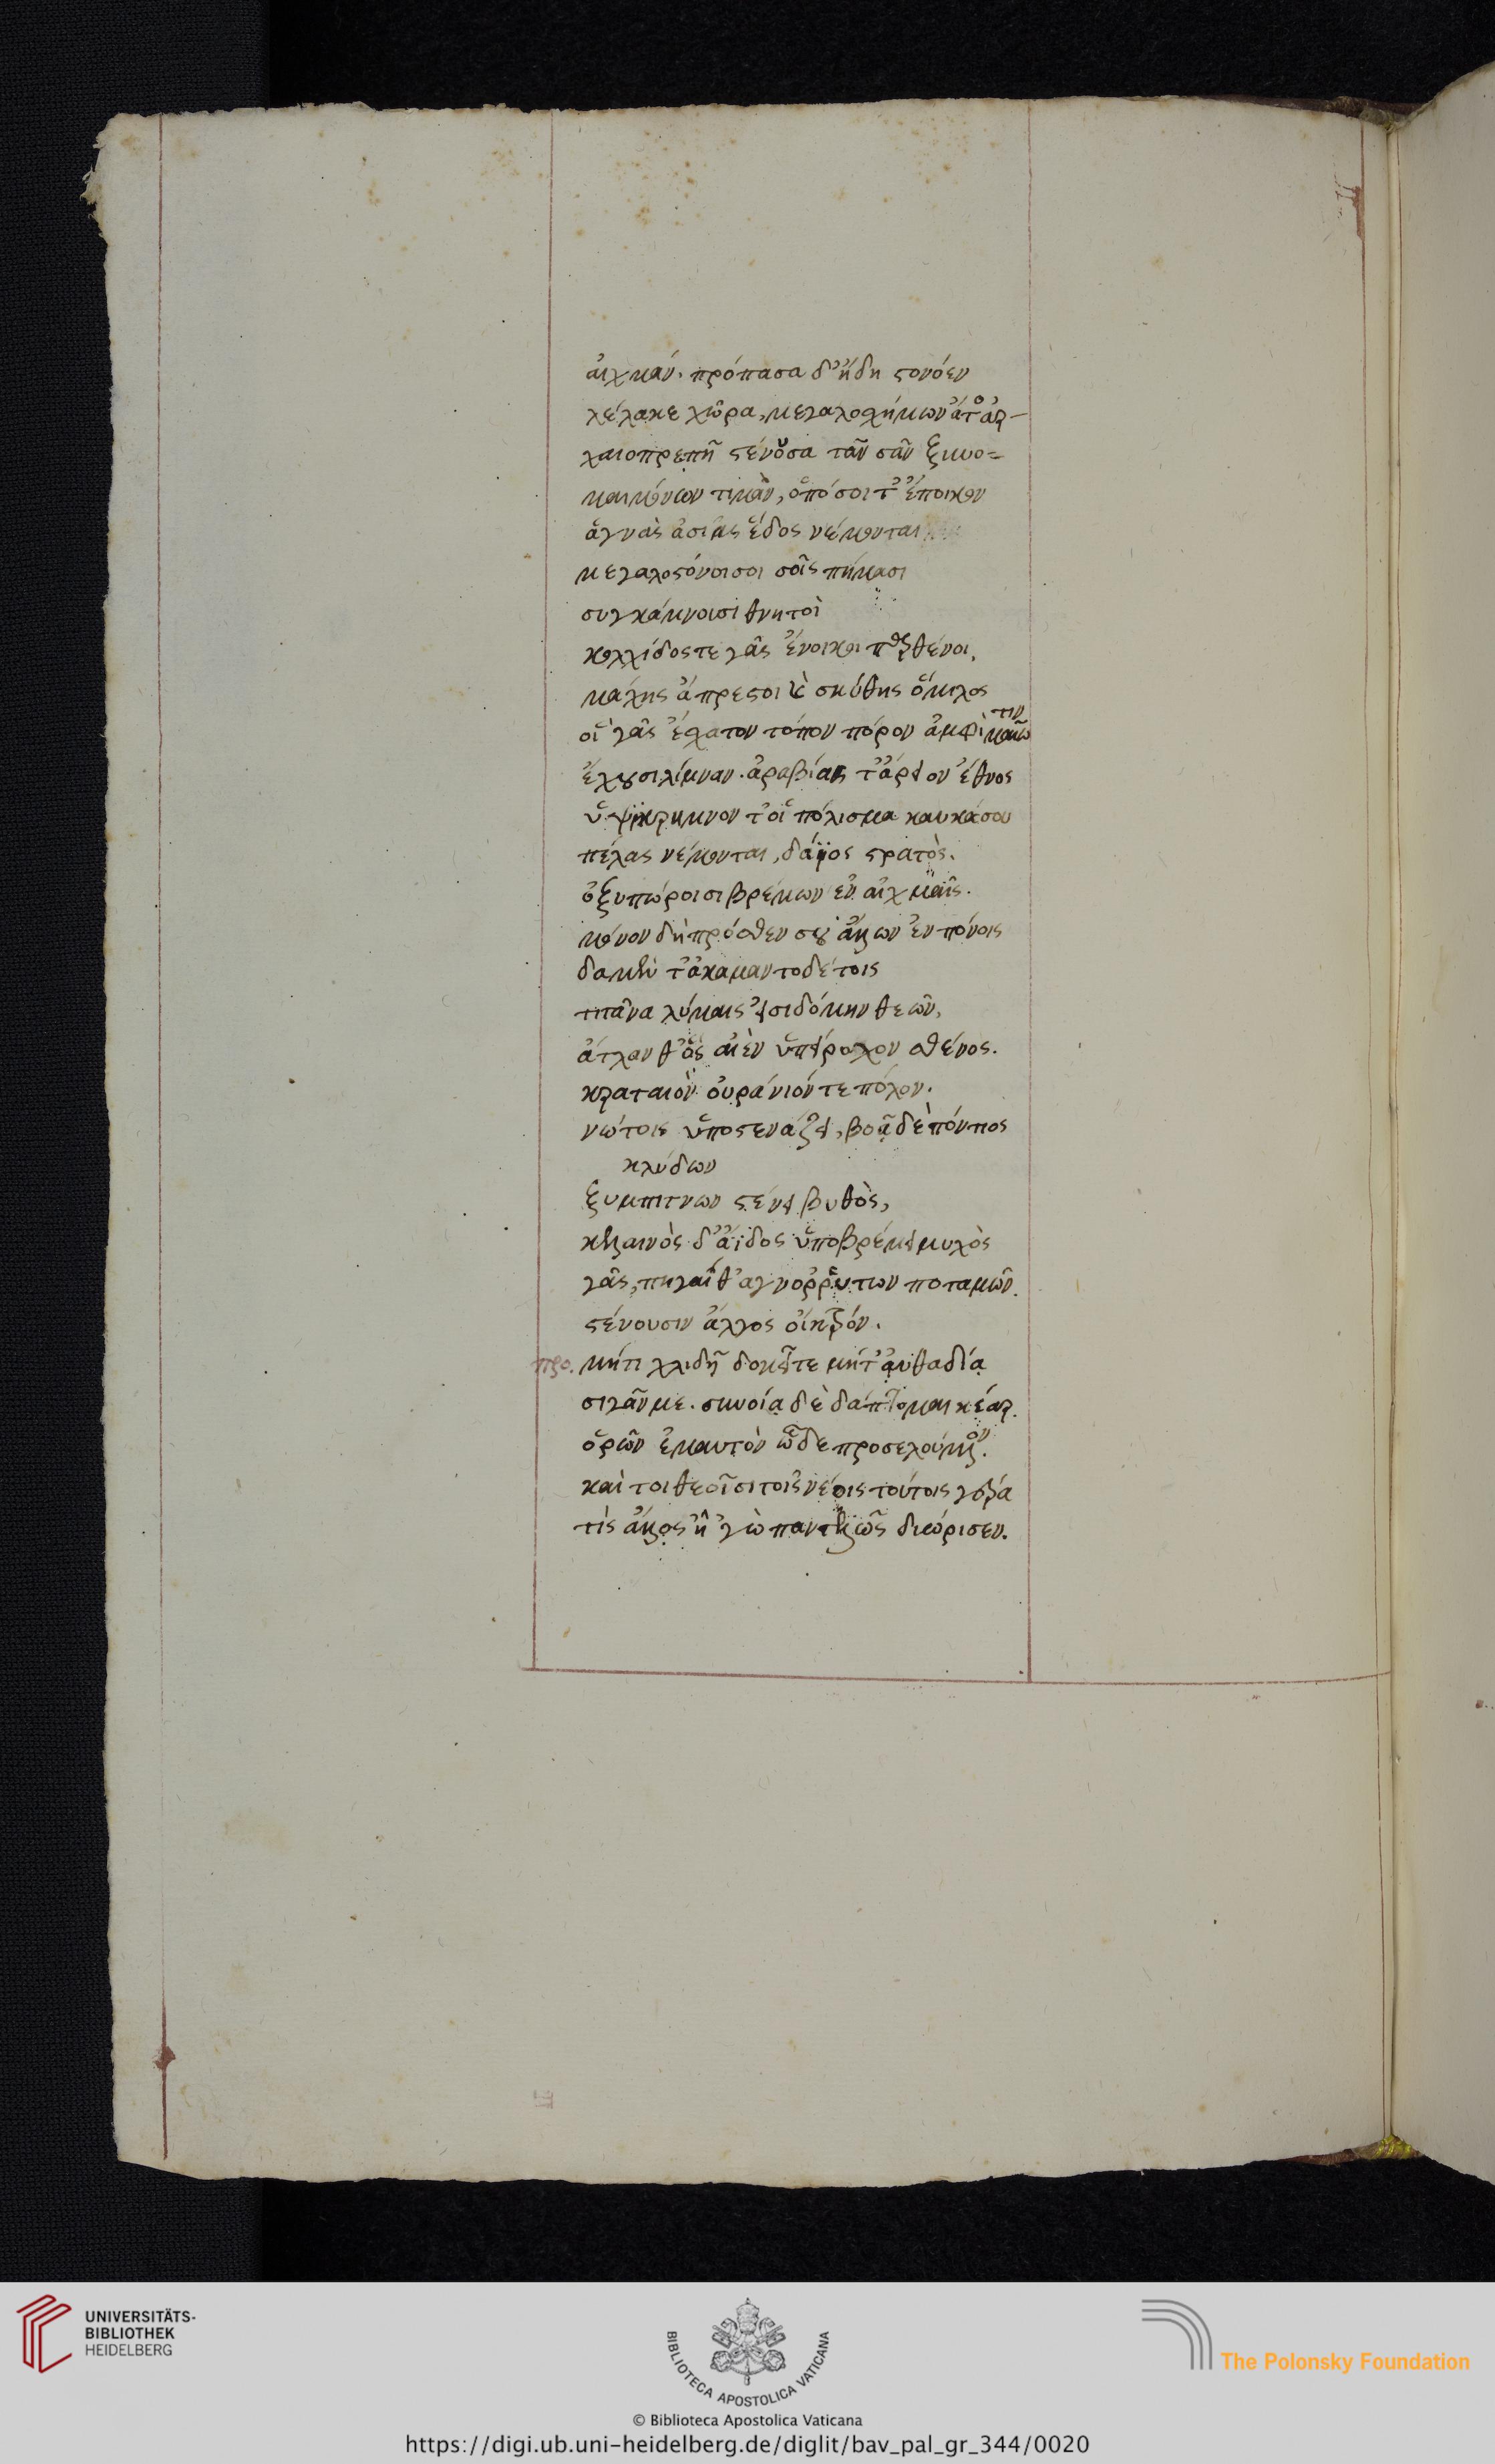 αἰχμάν. πρόπασα δ' ἤδη στονόεν
λέλακε χώρα, μεγαλοσχήμων ἅτ' ἀρ-
χαιοπρεπῆ στένουσα τὰν σὰν ξυνο-
μαιμόνων τιμὰν, ὁπόσοι τ' ἔποικον
ἁγνᾶς ἀσίας ἕδος νέμονται
μεγαλοστόνοισοι σοῖς πήμασι
συγκάμνουσι θνητοὶ
κολχίδος τε γᾶς ἔνοικοι παρθένοι,
μάχης ἄτρεστοι καὶ σκύθης ὅμιλος
οἳ γᾶς ἔσχατον τόπον πόρον ἀμφὶ μαιῶτιν
ἔχουσι λίμναν. ἀραβίας τ' ἄρειον ἔθνος
ὑψίκρημνον τ' οἳ πόλισμα καυκάσου
πέλας νέμονται, δάϊος στρατὸς.
ὀξυπώροισι βρέμων ἐν αἰχμαῖς.
μόνον δὴ πρόσθεν ἄλλων ἐν πόνοις
δαμέντ' ἀκαμαντοδέτοις
τιτᾶνα λύμαις εἰσιδόμην θεῶν,
ἄτλανθ' ὃς αἰὲν ὑπείροχον σθένος.
κραταιὸν οὐράνιόν τε πόλον.
νώτοις ὑποστενάζει, βοᾷ δὲ πόντιος
κλύδων
ξυμπιτνων στένει βυθὸς,
κελαινὸς δ' ἄϊδος ὑποβρέμει μυχὸς
γᾶς, παγαί θ' ἁγνορρύτων ποταμῶν.
στένουσιν ἄλγος οἰκτρόν.
προ. μήτι χλιδῇ δοκεῖτε μήτ' αὐθαδίᾳ
σιγᾶν με. συνοίᾳ δὲ δάπτομαι κέαρ.
ὁρῶν ἐμαυτὸν ὧδε προσελούμενον.
καὶ τοι θεοῖσι τοῖς νέοις τούτοις γέρα
τίς ἄλλος ἢ 'γὼ παντελῶς διώρισεν.
UNIVERSITÄTS-
BIBLIOTHEK
HEIDELBERG
BIBLIOTECA APOSTOLICA VATICANA
The Polonsky Foundation
© Biblioteca Apostolica Vaticana
https://digi.ub.uni-heidelberg.de/diglit/bav_pal_gr_344/0020